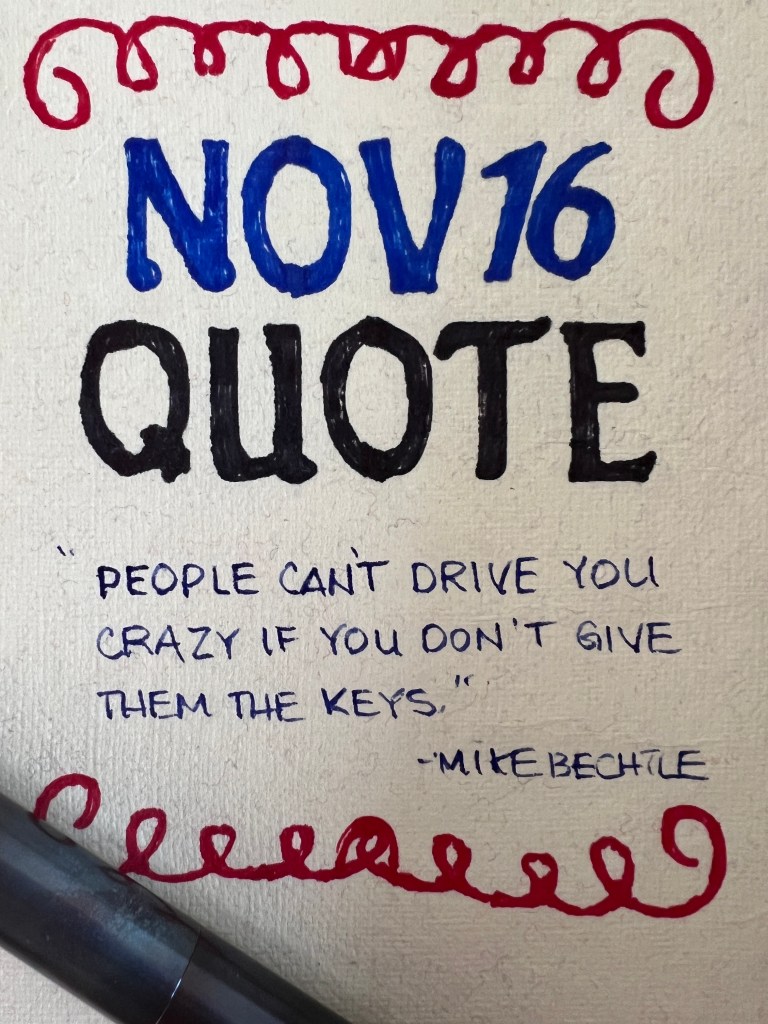 NOV 16
QUOTE
"PEOPLE CAN'T DRIVE YOU
CRAZY IF YOU DON'T GIVE
THEM THE KEYS."
-MIKE BECHTLE